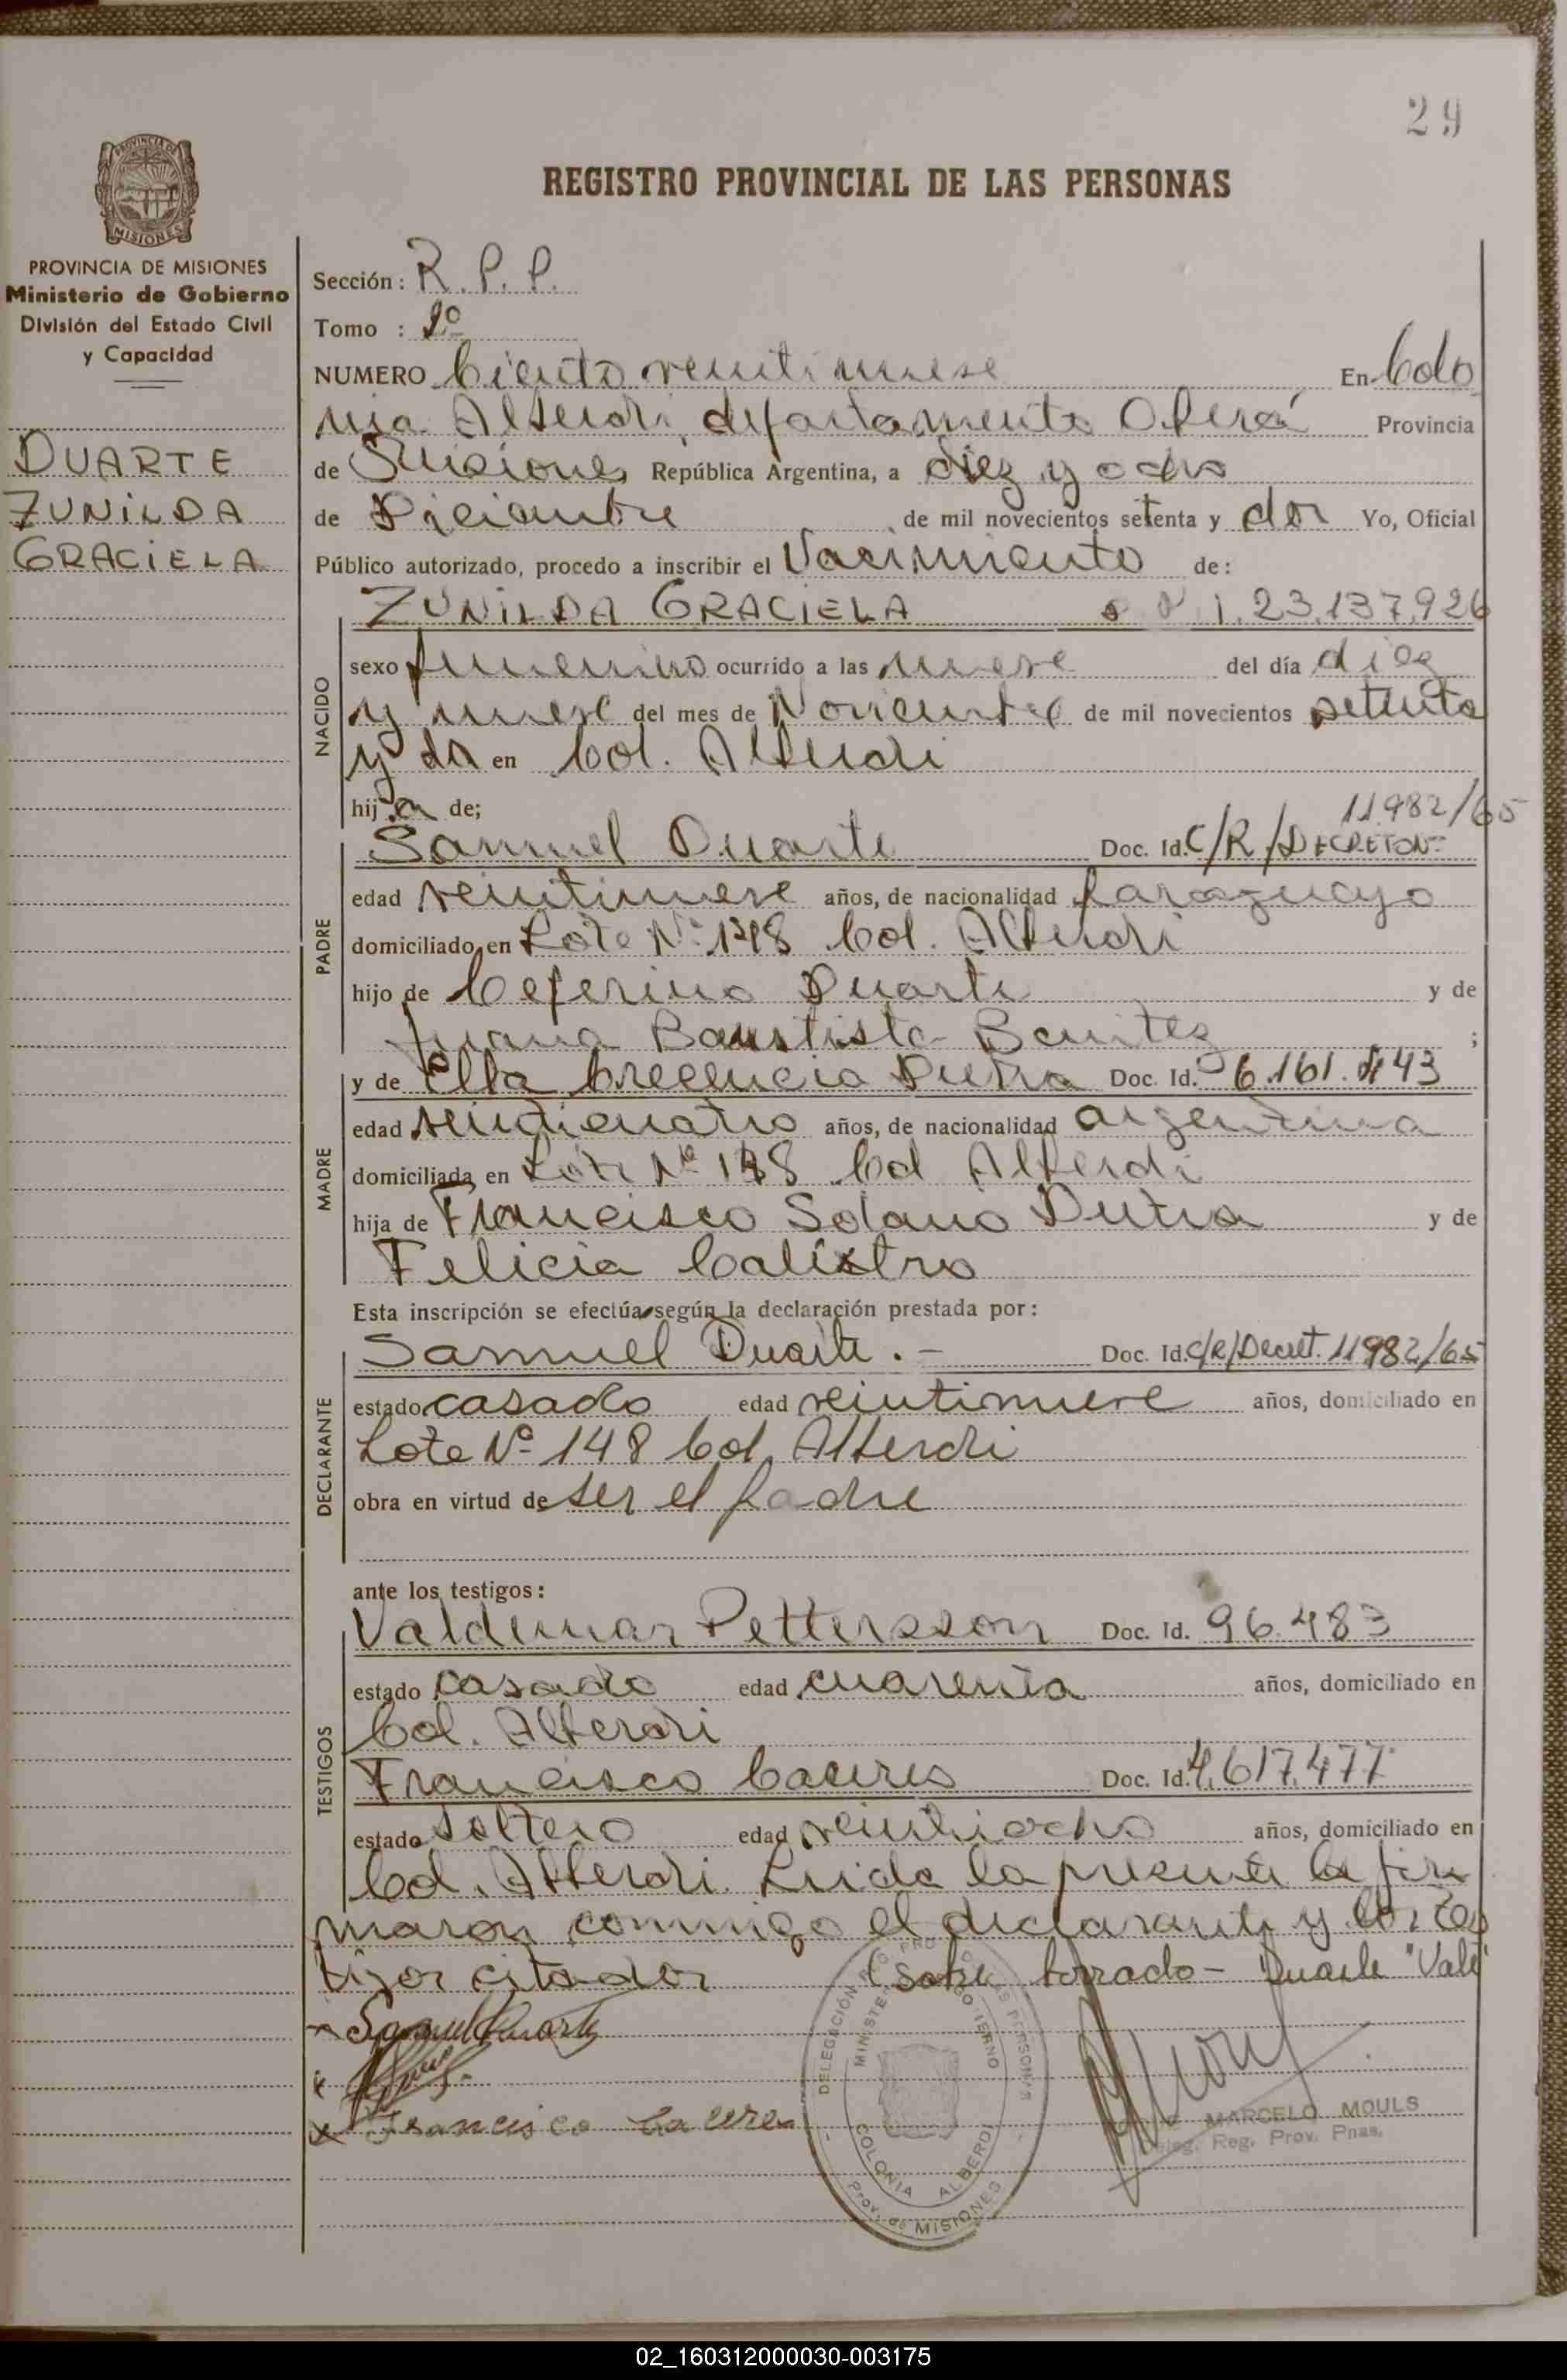 29
PROVINCIA DE
MISIONES
PROVINCIA DE MISIONES
Ministerio de Gobierno
División del Estado Civil
y Capacidad
DUARTE
ZUNILDA
GRACIELA
REGISTRO PROVINCIAL DE LAS PERSONAS
Sección: R.P.P.
Tomo : 2º
NUMERO Ciento veintinueve En Colo
nia Alberdi, departamento Oberá Provincia
de Misiones República Argentina, a diez y ocho
de Diciembre de mil novecientos setenta y dos Yo, Oficial
Público autorizado, procedo a inscribir el Nacimiento de:
ZUNILDA GRACIELA 23.137.926
NACIDO
sexo femenino ocurrido a las nueve del día diez
y nueve del mes de Noviembre de mil novecientos setenta
y dos en Col. Alberdi
hija de;
11.982/65
PADRE
Samuel Duarte Doc. Id. C/R/DECRETO Nº
edad veintinueve años, de nacionalidad Paraguayo
domiciliado en Lote Nº 148 Col. Alberdi
hijo de Ceferino Duarte y de
Juana Bautista Benitez ;
MADRE
y de Ella Crecencia Dutra Doc. Id. 6.161.443
edad veinticuatro años, de nacionalidad argentina
domiciliada en Lote Nº 148 Col Alberdi
hija de Francisco Solano Dutra y de
Felicia Calistro
Esta inscripción se efectúa según la declaración prestada por:
DECLARANTE
Samuel Duarte.- Doc. Id. C/R/Decret. 11982/65
estado casado edad veintinueve años, domiciliado en
Lote Nº 148 Col. Alberdi
obra en virtud de ser el padre
ante los testigos:
TESTIGOS
Valdemar Pettersson Doc. Id. 96.483
estado casado edad cuarenta años, domiciliado en
Col. Alberdi
Francisco Caceres Doc. Id. 4.617.477
estado soltero edad veintiocho años, domiciliado en
Col. Alberdi. Leida la presente la fir
maron conmigo el declarante y los tes
tigos citados (sobre borrado - Duarte "Vale"
Samuel Duarte
Francisco Caceres
DELEGACIÓN REG. PROV. DE LAS PERSONAS
MINISTERIO DE GOBIERNO
COLONIA ALBERDI
Prov. de MISIONES
MARCELO MOULS
Deleg. Reg. Prov. Pnas.
02_160312000030-003175